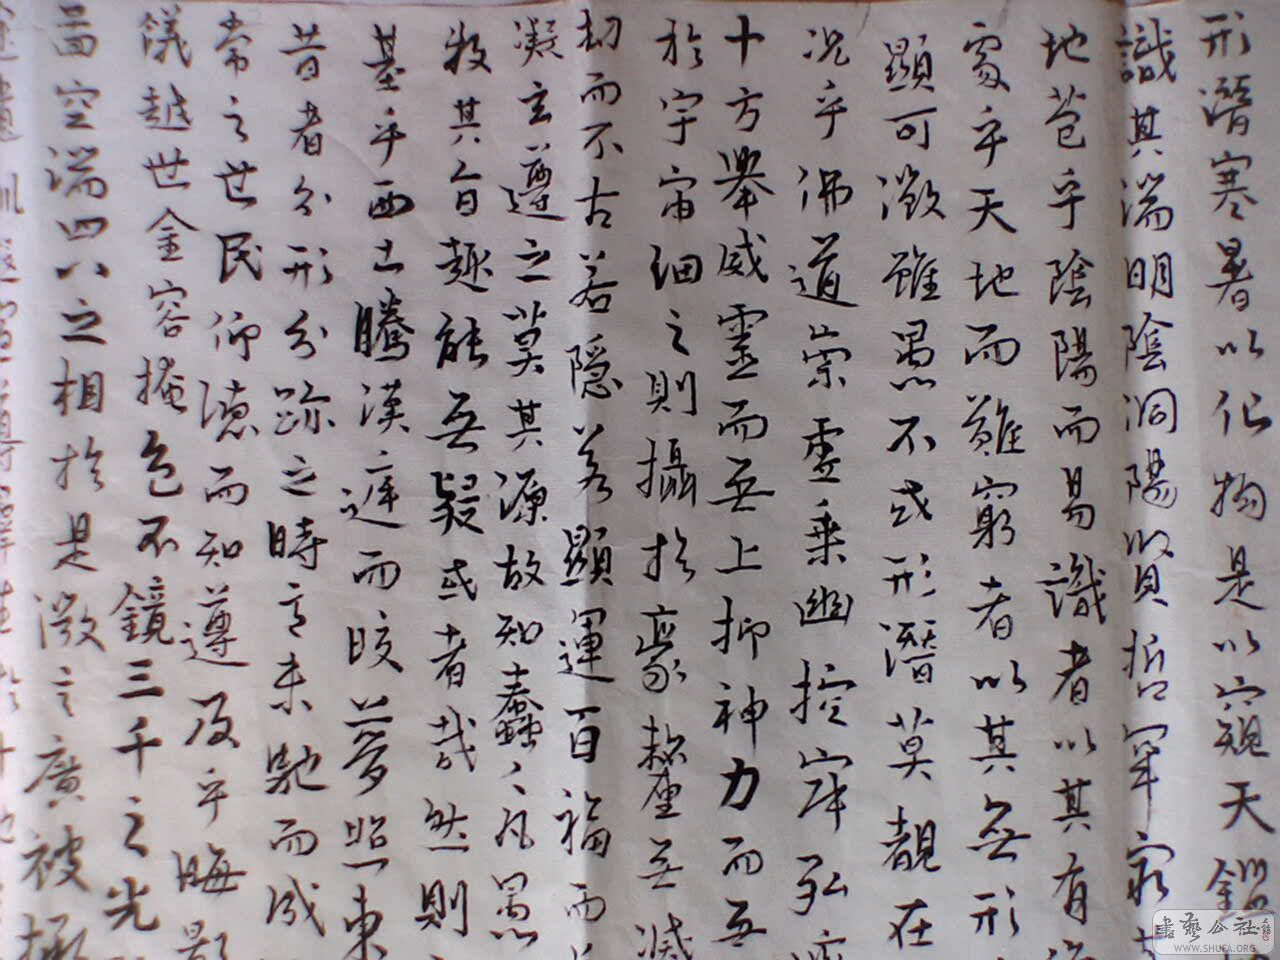 形潛寒暑以化物是以窺天鑑
識其端明陰洞陽賢哲罕窮其
地苞乎陰陽而易識者以其有
處乎天地而難窮者以其無形
顯可徵雖愚不惑形潛莫覩在
況乎佛道崇虛乘幽控寂弘
十方舉威靈而無上抑神力而無
於宇宙細之則攝於豪釐無滅
劫而不古若隱若顯運百福而
凝玄遵之莫其源故知蠢蠢凡愚
教其旨趣能無疑惑者哉然則
基乎西土騰漢庭而皎夢照東
昔者分形分跡之時言未馳而成
常之世民仰德而知遵及乎晦影
儀越世金容掩色不鏡三千之光
啚空端四八之相於是微言廣被拯
書藝公社
WWW.SHUFA.ORG